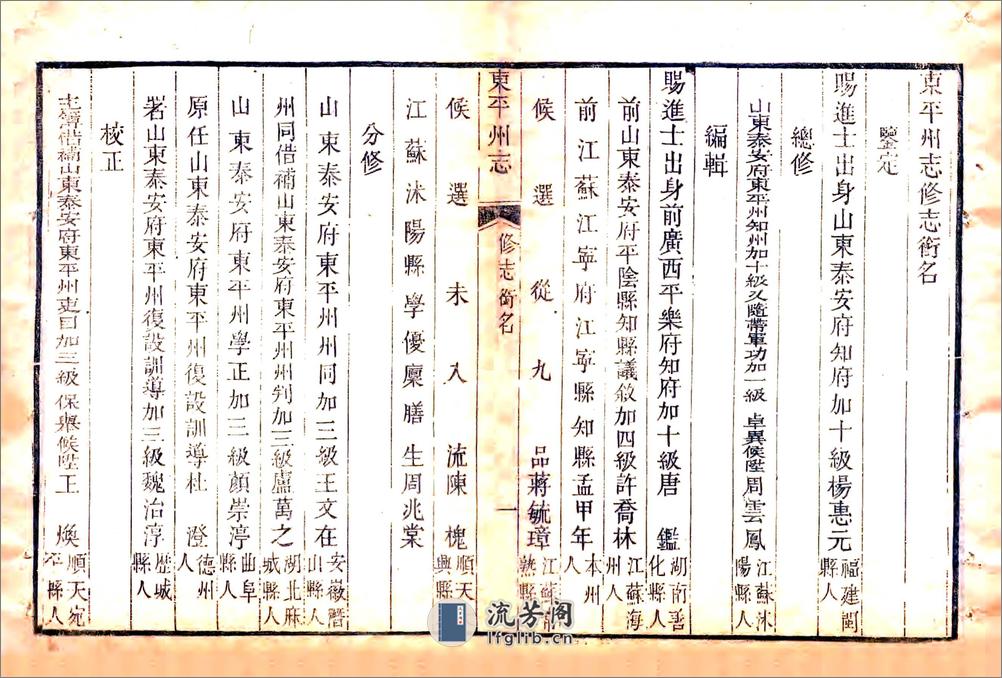 東平州志修志銜名
鑒定
賜進士出身山東泰安府知府加十級楊惠元福建閩縣人
總修
山東泰安府東平州知州加十級又隨帶軍功加一級卓異候陞周雲鳳江蘇沭陽縣人
編輯
賜進士出身前廣西平樂府知府加十級唐鑑湖南善化縣人
前山東泰安府平陰縣知縣議敘加四級許喬林江蘇海州人
前江蘇江寧府江寧縣知縣孟甲年本州人
候選從九品蔣毓璋江蘇常熟縣人
東平州志 修志銜名 一
候選未入流陳槐順天大興縣人
江蘇沭陽縣學優廩膳生周兆棠
分修
山東泰安府東平州州同加二級王文在安徽潛山縣人
州同借補山東泰安府東平州州判加三級盧萬之湖北麻城縣人
山東泰安府東平州學正加二級顏崇渟曲阜縣人
原任山東泰安府東平州復設訓導杜澄德州人
署山東泰安府東平州復設訓導加三級魏治淳歷城縣人
校正
借補山東泰安府東平州吏目加三級保舉候陞王煥順天宛平縣人
流芳阁
lfglib.cn